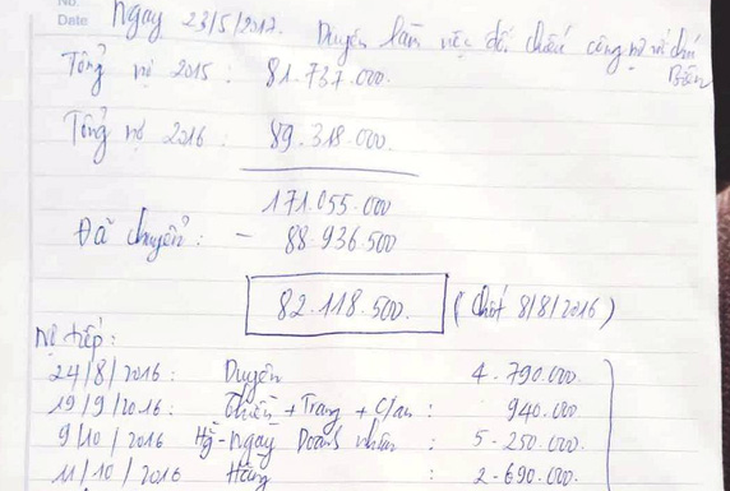 No.
Date Ngày 23/5/2017. Duyên làm việc đối chiếu công nợ với chú
Tổng nợ 2015 : 81.737.000.
Tổng nợ 2016 : 89.318.000.
171.055.000
Đã chuyển : - 88.936.500
82.118.500. (chốt 8/8/2016)
Nợ tiếp :
24/8/2016 : Duyên 4.790.000.
19/9/2016 : + Trang + C/an : 940.000.
9/10/2016 - Ngày Doanh nhân : 5.250.000.
11/10/2016 Hằng : 2.690.000.